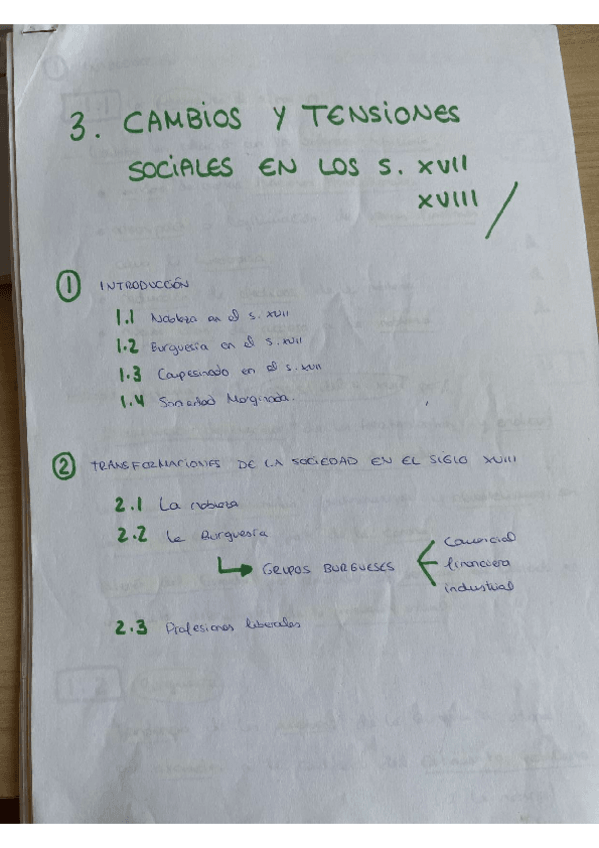 3. CAMBIOS Y TENSIONES
SOCIALES EN LOS S. XVII
XVIII
1 INTRODUCCIÓN
1.1 Nobleza en el s. XVII
1.2 Burguesía en el s. XVII
1.3 Campesinado en el s. XVII
1.4 Sociedad Marginada.
2 TRANSFORMACIONES DE LA SOCIEDAD EN EL SIGLO XVIII
2.1 La nobleza
2.2 La Burguesía
GRUPOS BURGUESES
comercial
financiera
industrial
2.3 Profesiones liberales